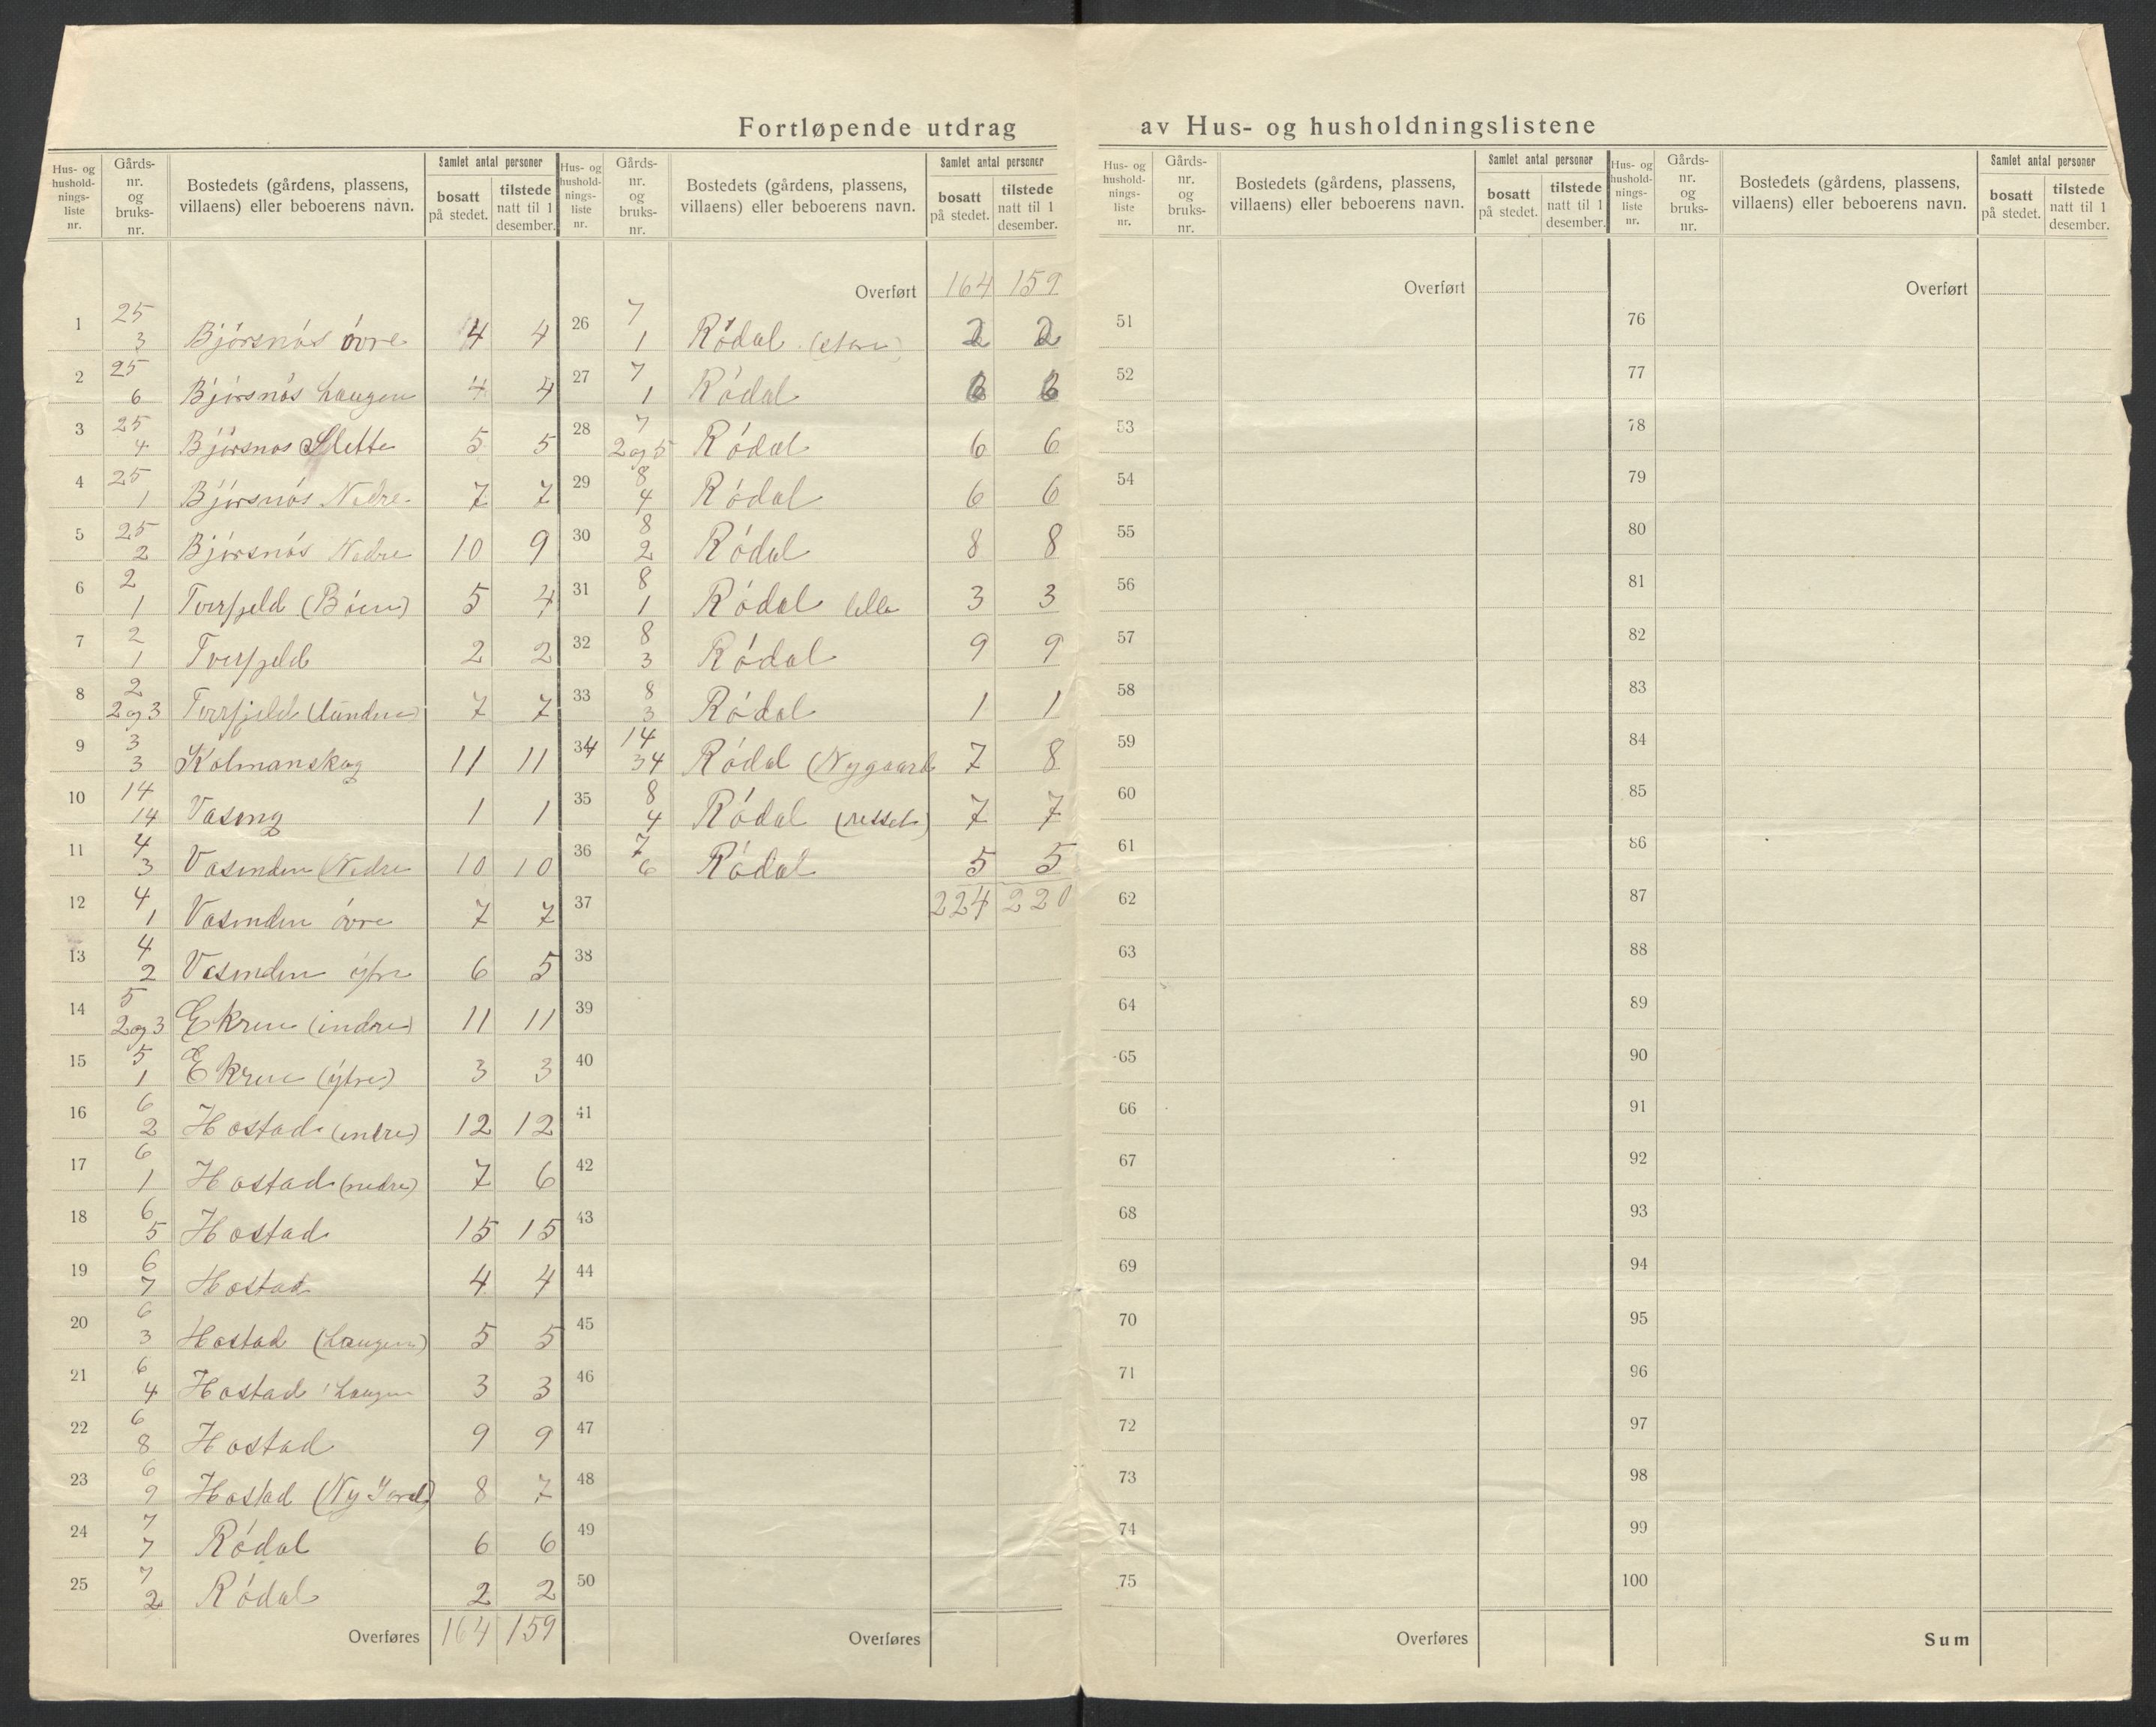 Fortløpende utdrag av Hus- og husholdningslistene
Hus- og husholdnings-liste nr. Gårds-nr. og bruks-nr. Bostedets (gårdens, plassens, villaens) eller beboerens navn. Samlet antal personer bosatt på stedet. tilstede natt til 1 desember.
1 25 3 Bjørsnøs øvre 4 4
2 25 6 Bjørsnøs Haugen 4 4
3 25 4 Bjørsnøs Slette 5 5
4 25 1 Bjørsnøs Nedre 7 7
5 25 2 Bjørsnøs Nedre 10 9
6 2 1 Tverfjeld (Bøen) 5 4
7 2 1 Tverfjeld 2 2
8 2 2 og 3 Tverfjeld 7 7
9 3 3 Kolmanskog 11 11
10 14 14 1 1
11 4 3 Vasenden (Nedre 10 10
12 4 1 Vasenden øvre 7 7
13 4 2 Vasenden ytre 6 5
14 5 2 og 3 Ekren (indre) 11 11
15 5 1 Ekren (ytre) 3 3
16 6 2 Hostad (indre) 12 12
17 6 1 Hostad (nedre) 7 6
18 6 5 Hostad 15 15
19 6 7 Hostad 4 4
20 6 3 Hostad (Haugen) 5 5
21 6 4 Hostad Haugen 3 3
22 6 8 Hostad 9 9
23 6 9 Hostad (Ny Jord) 8 7
24 7 7 Rødal 6 6
25 7 2 Rødal 2 2
Overføres 164 159
Hus- og husholdnings-liste nr. Gårds-nr. og bruks-nr. Bostedets (gårdens, plassens, villaens) eller beboerens navn. Samlet antal personer bosatt på stedet. tilstede natt til 1 desember.
Overført 164 159
26 7 1 Rødal (store) 2 2
27 7 1 Rødal 6 6
28 7 2 og 5 Rødal 6 6
29 8 4 Rødal 6 6
30 8 2 Rødal 8 8
31 8 1 Rødal lille 3 3
32 8 3 Rødal 9 9
33 8 3 Rødal 1 1
34 14 34 Rødal (Nygaard 7 8
35 8 4 Rødal 7 7
36 7 6 Rødal 5 5
37 224 220
38
39
40
41
42
43
44
45
46
47
48
49
50
Overføres
Hus- og husholdnings-liste nr. Gårds-nr. og bruks-nr. Bostedets (gårdens, plassens, villaens) eller beboerens navn. Samlet antal personer bosatt på stedet. tilstede natt til 1 desember.
Overført
51
52
53
54
55
56
57
58
59
60
61
62
63
64
65
66
67
68
69
70
71
72
73
74
75
Overføres
Hus- og husholdnings-liste nr. Gårds-nr. og bruks-nr. Bostedets (gårdens, plassens, villaens) eller beboerens navn. Samlet antal personer bosatt på stedet. tilstede natt til 1 desember.
Overført
76
77
78
79
80
81
82
83
84
85
86
87
88
89
90
91
92
93
94
95
96
97
98
99
100
Sum